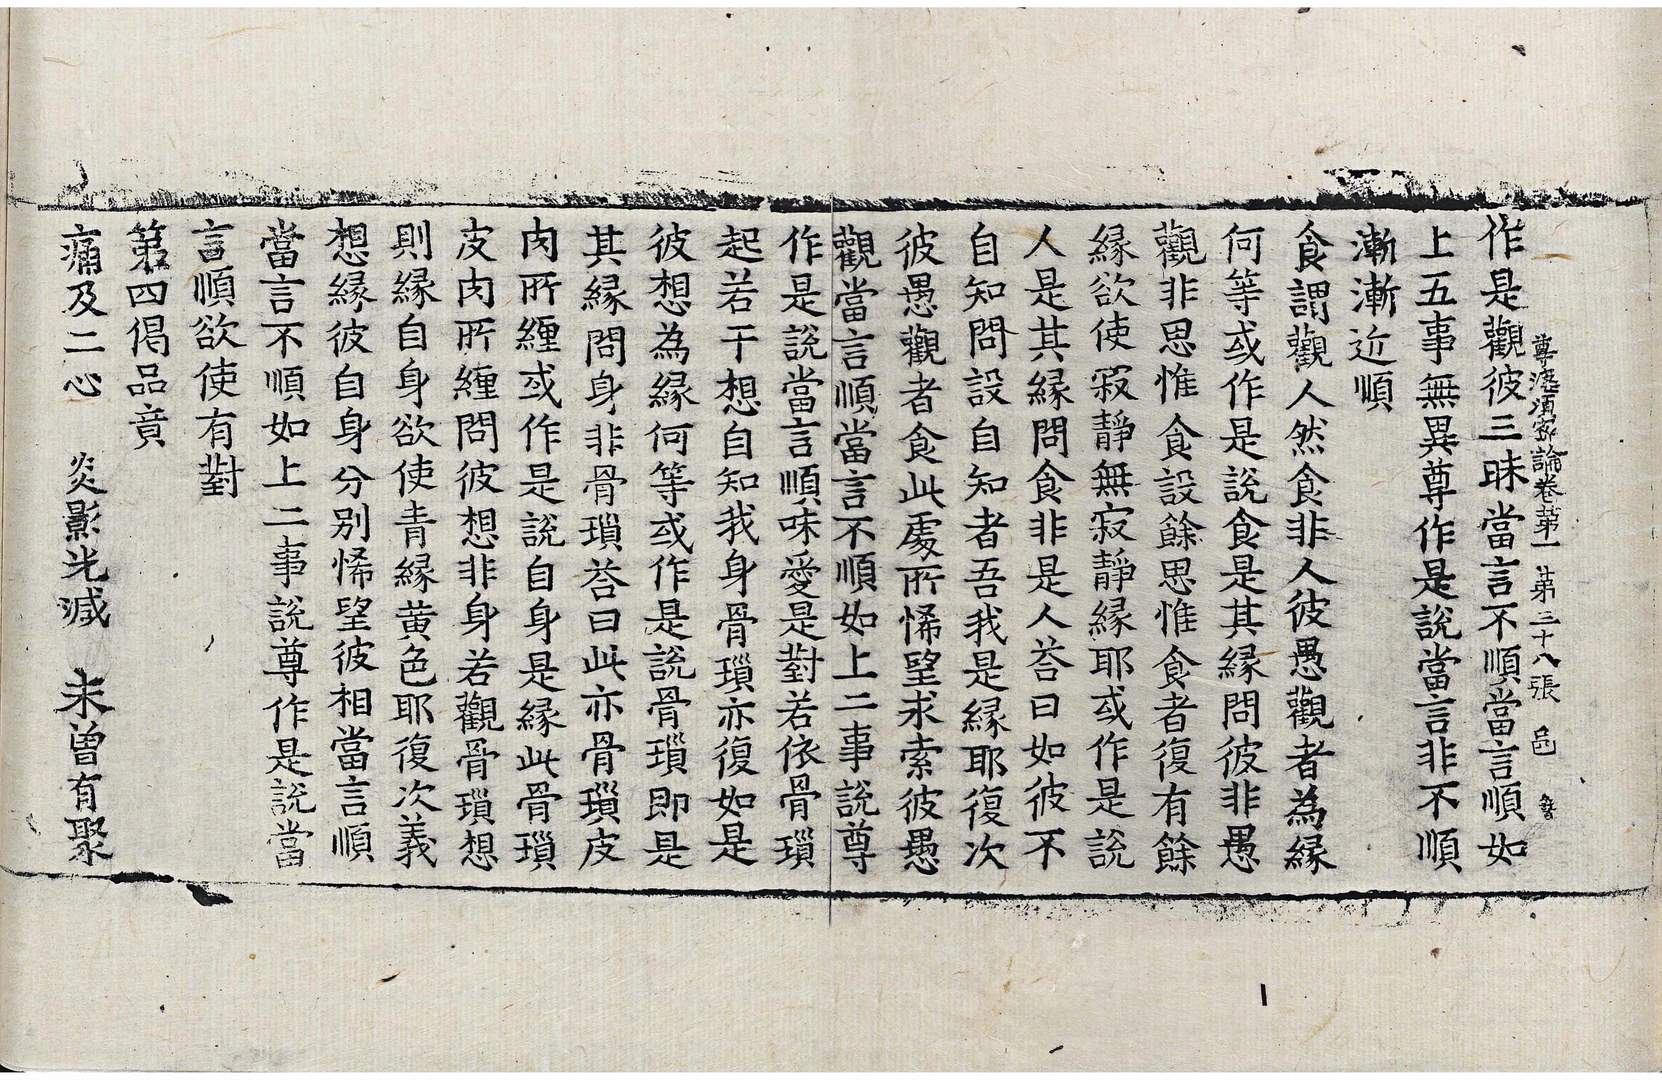 尊婆須蜜論卷第一 第三十八張 邑
作是觀彼三昧當言不順當言順如
上五事無異尊作是說當言非不順
漸漸近順
食謂觀人然食非人彼愚觀者為緣
何等或作是說食是其緣問彼非愚
觀非思惟食設餘思惟食者復有餘
緣欲使寂靜無寂靜緣耶或作是說
人是其緣問食非是人荅曰如彼不
自知問設自知者吾我是緣耶復次
彼愚觀者食此處所悕望求索彼愚
觀當言順當言不順如上二事說尊
作是說當言順味愛是對若依骨瑣
起若干想自知我身骨瑣亦復如是
彼想為緣何等或作是說骨瑣即是
其緣問身非骨瑣荅曰此亦骨瑣皮
肉所纏或作是說自身是緣此骨瑣
皮肉所纏問彼想非身若觀骨瑣想
則緣自身欲使青緣黃色耶復次義
想緣彼自身分別悕望彼相當言順
當言不順如上二事說尊作是說當
言順欲使有對
第四偈品竟
痛及二心 炎影光滅 未曾有聚